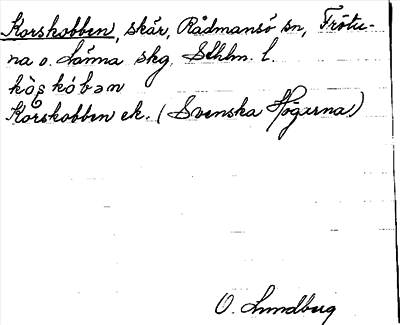 Korskobben, skär, Rådmansö sn, Frötu-
na o. Länna skg. Sthlm. l.
kòş kóbən
Korskobben ek. (Svenska Högarna)
O. Lundberg